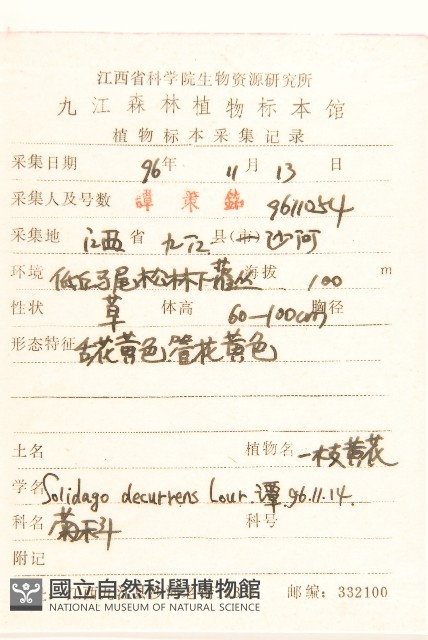 江西省科学院生物资源研究所
九江森林植物标本馆
植物标本采集记录
采集日期 96年 11月 13日
采集人及号数 譚策銘 9611054
采集地 江西省 九江县(市)沙河
环境 低丘马尾松林下灌丛 海拔 100 m
性状 草 体高 60—100cm 胸径
形态特征 舌花黄色 管花黄色
土名 植物名 一枝黄花
学名 Solidago decurrens Lour. 谭 96.11.14.
科名 菊科 科号
附记
邮编：332100
國立自然科學博物館
NATIONAL MUSEUM OF NATURAL SCIENCE